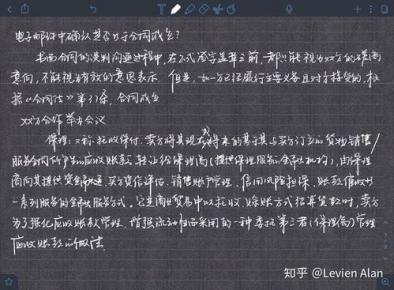 电子邮件中确认是否等于合同成立?
书面合同的谈判沟通过程中,在正式签字盖章之前,都只能视为双方的磋商
意向,不能视为有效的意思表示。但是,如一方已经履行主要义务且对方接受的,根
据《合同法》第37条,合同成立
双方合作 会议
保理:又称托收保付,卖方将其现在或将来的基于其与买方订立的货物销售/
服务合同所产生的应收账款转让给保理商(提供保理服务的金融机构),由保理
商向其提供资金融通、买方资信评估、销售账户管理、信用风险担保、账款催收等
一系列服务的综合金融服务方式。它是商业贸易中以托收、赊账方式结算货款时,卖方
为了强化应收账款管理、增强流动性而采用的一种委托第三者(保理商)管理
应收账款的做法
知乎 @Levien Alan